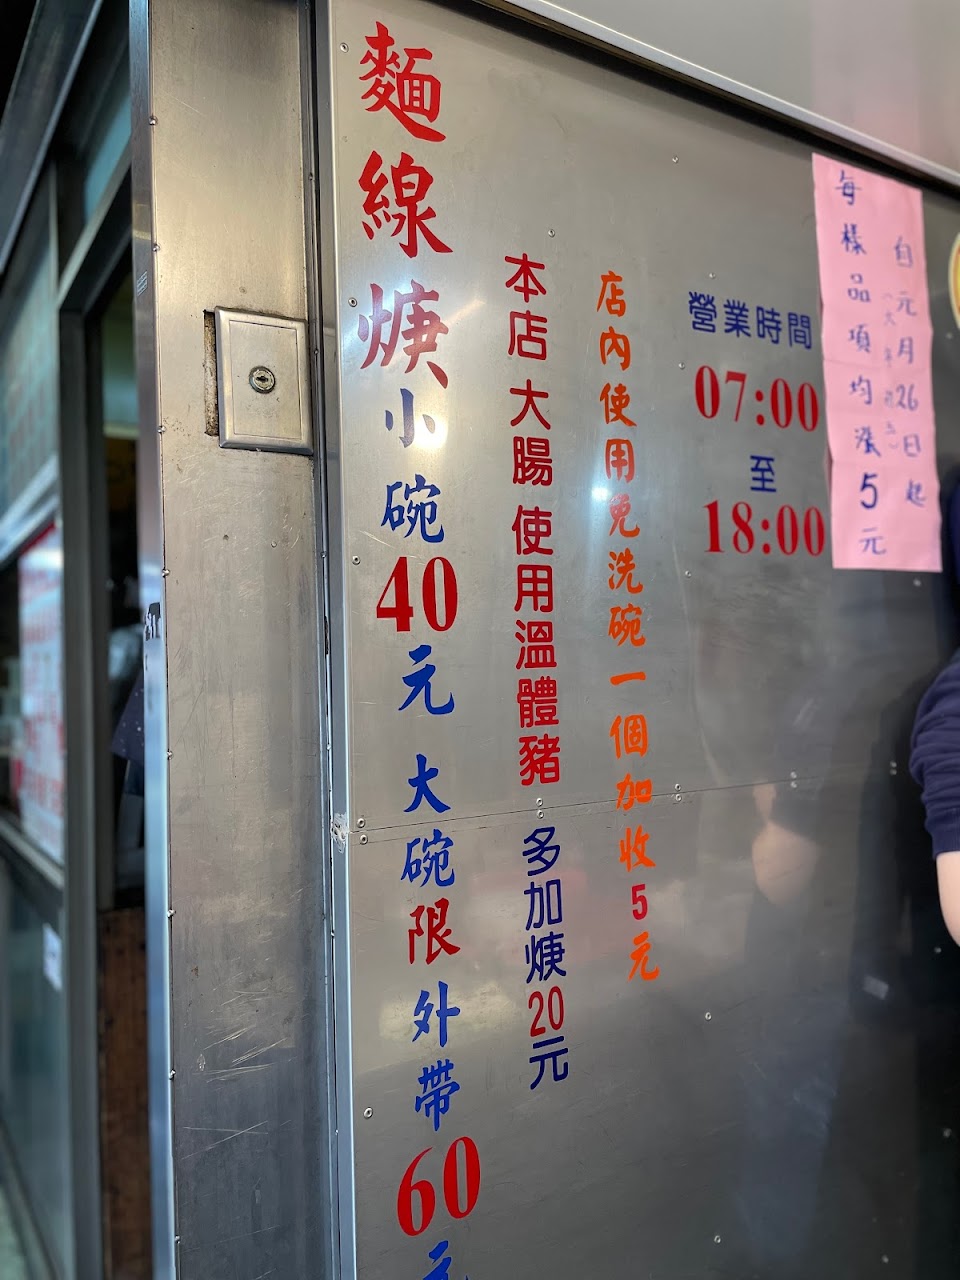 麵線焿小碗40元 大碗限外帶60元
本店大腸使用溫體豬 多加焿20元
店內使用免洗碗一個加收5元
營業時間
07:00
至
18:00
自元月26日起
每樣品項均漲5元